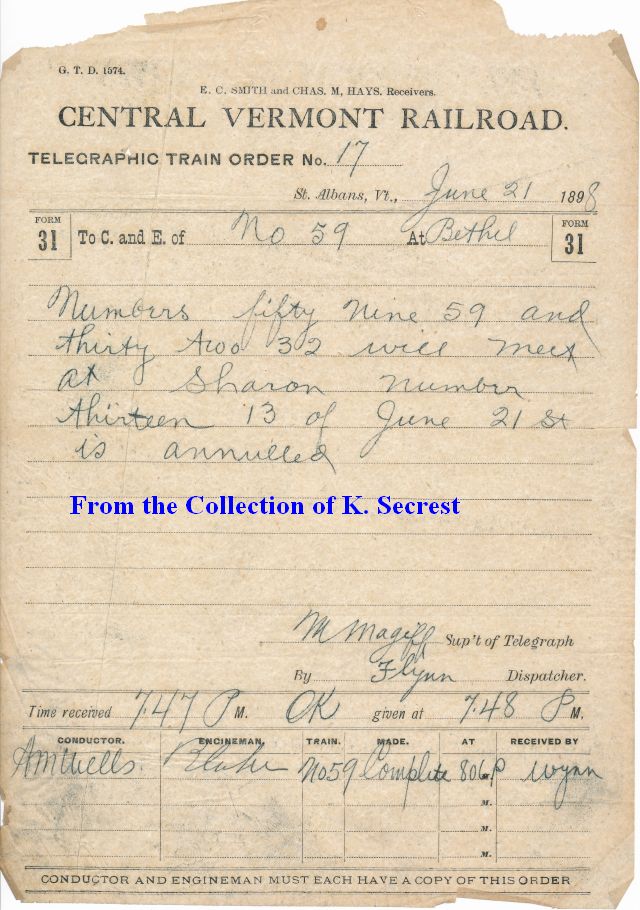 G. T. D. 1574.
E. C. SMITH and CHAS. M, HAYS. Receivers.
CENTRAL VERMONT RAILROAD.
TELEGRAPHIC TRAIN ORDER No. 17
St. Albans, Vt., June 21 1898
FORM 31 To C. and E. of No 59 At Bethel FORM 31
Numbers fifty Nine 59 and
thirty two 32 will meet
at Sharon Number
thirteen 13 of June 21 st
is annulled
From the Collection of K. Secrest
M Magiff Sup't of Telegraph
By Flynn Dispatcher.
Time received 7.47 P M. OK given at 7.48 P M.
CONDUCTOR. ENGINEMAN. TRAIN. MADE. AT RECEIVED BY
AM Wells. Blake No 59 Complete 806 P M. Wynn
M.
M.
M.
CONDUCTOR AND ENGINEMAN MUST EACH HAVE A COPY OF THIS ORDER